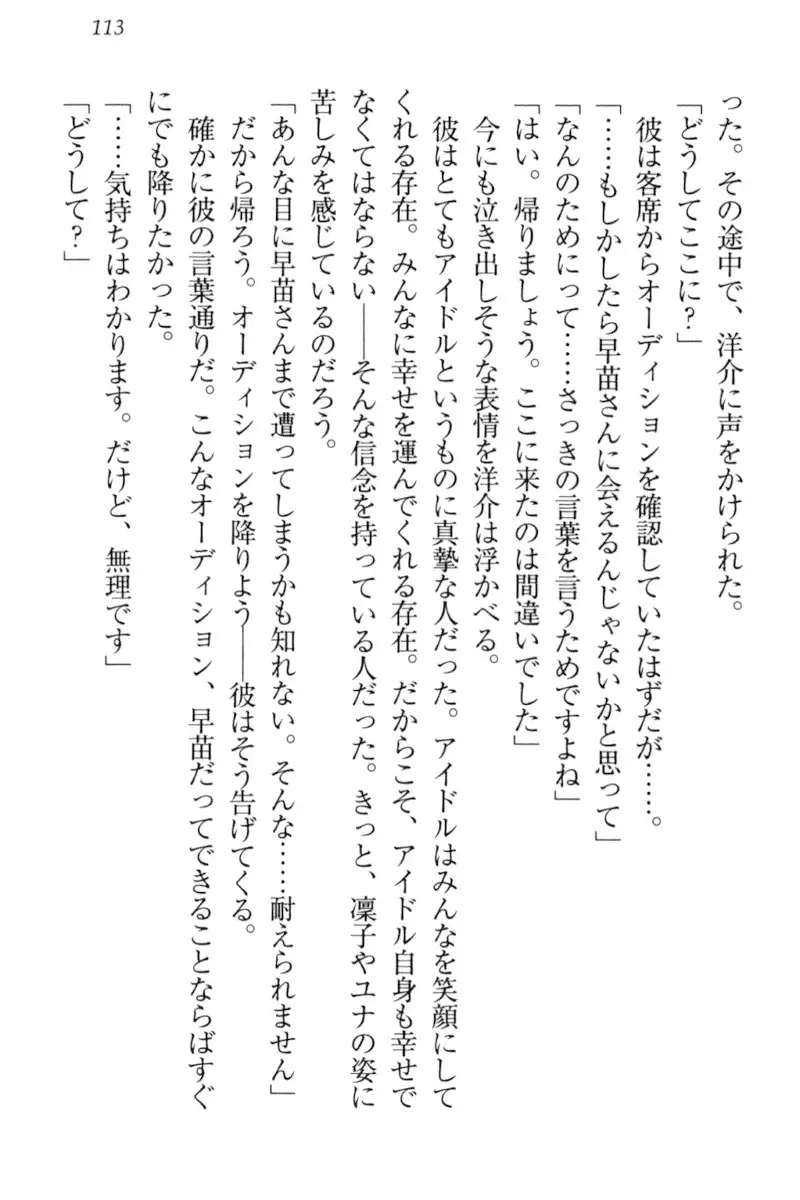 113
った。その途中で、洋介に声をかけられた。
「どうしてここに？」
彼は客席からオーディションを確認していたはずだが……。
「……もしかしたら早苗さんに会えるんじゃないかと思って」
「なんのためにって……さっきの言葉を言うためですよね」
「はい。帰りましょう。ここに来たのは間違いでした」
今にも泣き出しそうな表情を洋介は浮かべる。
彼はとてもアイドルというものに真摯な人だった。アイドルはみんなを笑顔にして
くれる存在。みんなに幸せを運んでくれる存在。だからこそ、アイドル自身も幸せで
なくてはならない――そんな信念を持っている人だった。きっと、凜子やユナの姿に
苦しみを感じているのだろう。
「あんな目に早苗さんまで遭ってしまうかも知れない。そんな……耐えられません」
だから帰ろう。オーディションを降りよう――彼はそう告げてくる。
確かに彼の言葉通りだ。こんなオーディション、早苗だってできることならばすぐ
にでも降りたかった。
「……気持ちはわかります。だけど、無理です」
「どうして？」